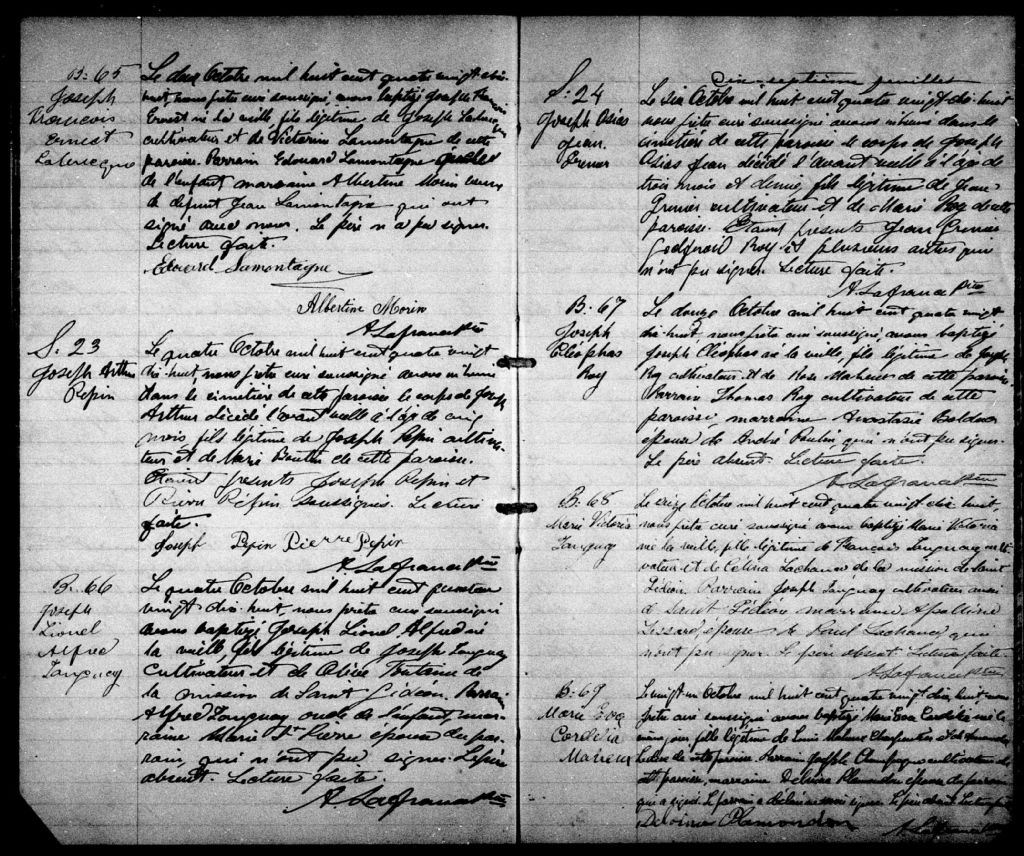 B. 65
Joseph
François
Ernest
Labrecque
Le deux Octobre mil huit cent quatre vingt dix
huit, nous prêtre curé soussigné, avons baptisé Joseph François
Ernest né la veille, fils légitime de Joseph Labrecque
cultivateur et de Victorine Lamontagne de cette
paroisse. Parrain Edouard Lamontagne
de l'enfant marraine Albertine Morin
de defunt Jean Lamontagne qui ont
signé avec nous. Le père n'a pu signer.
Lecture faite.
Edouard Lamontagne
Albertine Morin
A. Lafrance Ptre
S. 23
Joseph Arthur
Pépin
Le quatre Octobre mil huit cent quatre vingt
dix-huit, nous prêtre curé soussigné avons inhumé
dans le cimetière de cette paroisse le corps de Joseph
Arthur décédé l'avant veille à l'âge de cinq
mois, fils légitime de Joseph Pépin cultiva-
teur et de Marie Boutin de cette paroisse.
Etaient présents Joseph Pépin et
Pierre Pépin soussignés. Lecture
faite.
Joseph Pepin Pierre Pepin
A. Lafrance Ptre
B. 66
Joseph
Lionel
Alfred
Tanguay
Le quatre Octobre mil huit cent quatre
vingt dix-huit, nous prêtre curé soussigné
avons baptisé Joseph Lionel Alfred né
la veille, fils légitime de Joseph Tanguay
cultivateur et de Fontaine de
la mission de Saint Gédéon. Parrain
Alfred Tanguay oncle de l'enfant, mar-
raine Marie St Pierre épouse du par-
rain, qui n'ont pu signer. Le père
absent. Lecture faite.
A. Lafrance Ptre
Dix-septième feuillet
S. 24
Joseph Osias
Jean
Grenier
Le six Octobre mil huit cent quatre vingt dix-huit
nous prêtre curé soussigné avons inhumé dans le
cimetière de cette paroisse le corps de Joseph
Osias Jean décédé l'avant veille à l'âge de
trois mois et demi, fils légitime de Jean
Grenier cultivateur et de Marie Roy de cette
paroisse. Etaient présents Jean Grenier
Godfroid Roy et plusieurs autres qui
n'ont pu signer. Lecture faite.
A. Lafrance Ptre
B. 67
Joseph
Cléophas
Roy
Le douze Octobre mil huit cent quatre vingt
dix-huit, nous prêtre curé soussigné, avons baptisé
Joseph Cléophas né la veille, fils légitime de Joseph
Roy cultivateur et de Rose Maheux de cette paroisse.
Parrain Thomas Roy cultivateur de cette
paroisse, marraine Anastasie Bolduc
épouse de André Poulin, qui n'ont pu signer.
Le père absent. Lecture faite.
A. Lafrance Ptre
B. 68
Marie Victoria
Tanguay
Le seize Octobre mil huit cent quatre vingt dix huit,
nous prêtre curé soussigné avons baptisé Marie Victoria
née la veille, fille légitime de François Tanguay culti-
vateur et de Célina Lachance de la mission de Saint
Gédéon. Parrain Joseph Tanguay cultivateur aussi
de Saint Gédéon marraine Apolline
Lessard, épouse de Lachance, qui
n'ont pu signer. Le père absent. Lecture faite.
A. Lafrance Ptre
B. 69
Marie Eva
Cordélia
Maheux
Le vingt un Octobre mil huit cent quatre vingt dix huit, nous
prêtre curé soussigné avons baptisé Marie Eva Cordélia née la
veille, fille légitime de Louis Maheux Charpentier et de
de cette paroisse. Parrain Joseph Champagne cultivateur de
cette paroisse, marraine Delvina Plamondon épouse du parrain
qui a signé. Le parrain a déclaré ne savoir signer. Le père absent. Lecture faite.
Delvina Plamondon
A. Lafrance Ptre